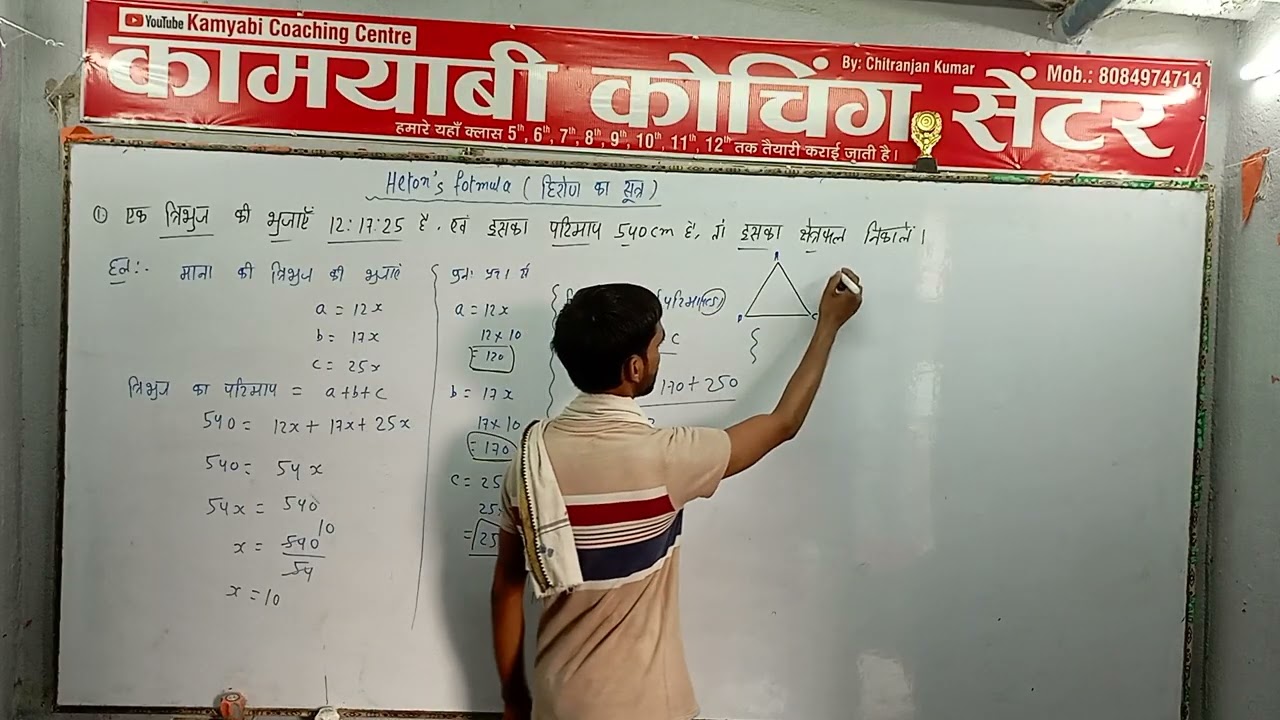 YouTube Kamyabi Coaching Centre
By: Chitranjan Kumar
Mob.: 8084974714
कामयाबी कोचिंग सेंटर
हमारे यहाँ क्लास 5th, 6th, 7th, 8th, 9th, 10th, 11th, 12th तक तैयारी कराई जाती है।
Heron's formula ( हिरोन का सूत्र )
① एक त्रिभुज की भुजाएँ 12:17:25 है, एवं इसका परिमाप 540cm है, तो इसका क्षेत्रफल निकालें।
हल:- माना की त्रिभुज की भुजाएं
a = 12x
b = 17x
c = 25x
त्रिभुज का परिमाप = a+b+c
540 = 12x + 17x + 25x
540 = 54x
54x = 540
x = 540 10
54
x = 10
a = 12x
12×10
= 120
b = 17x
17×10
= 170
c = 25
25
= 25
परिमाप(s)
c
170 + 250
A
B
C